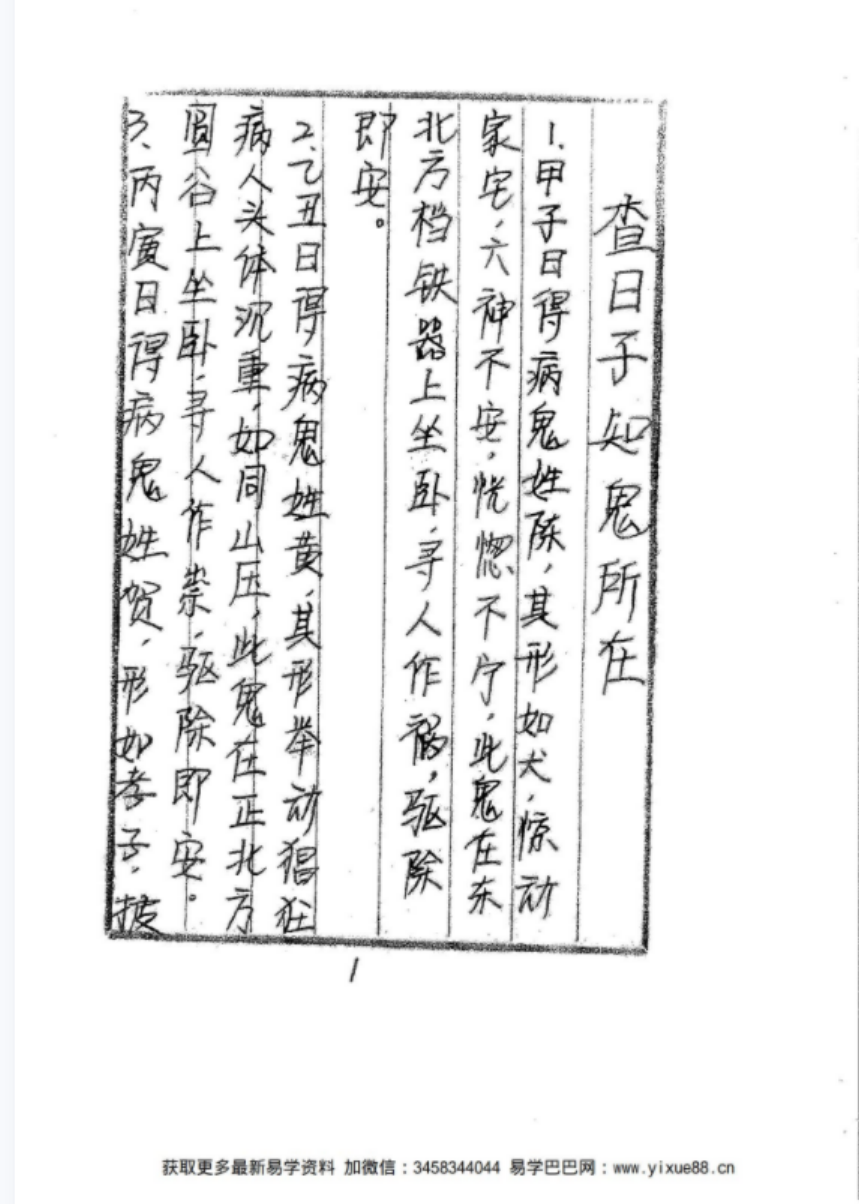 查日子知鬼所在
1.甲子日得病鬼姓陈，其形如犬，惊动
家宅，六神不安，恍惚不宁，此鬼在东
北方档铁器上坐卧，寻人作祸，驱除
即安。
2、乙丑日得病鬼姓黄，其形举动猖狂
病人头体沉重，如同山压，此鬼在正北方
圆谷上坐卧，寻人作祟，驱除即安。
3、丙寅日得病鬼姓贺，形如孝子，披
1
获取更多最新易学资料 加微信：3458344044 易学巴巴网：www.yixue88.cn